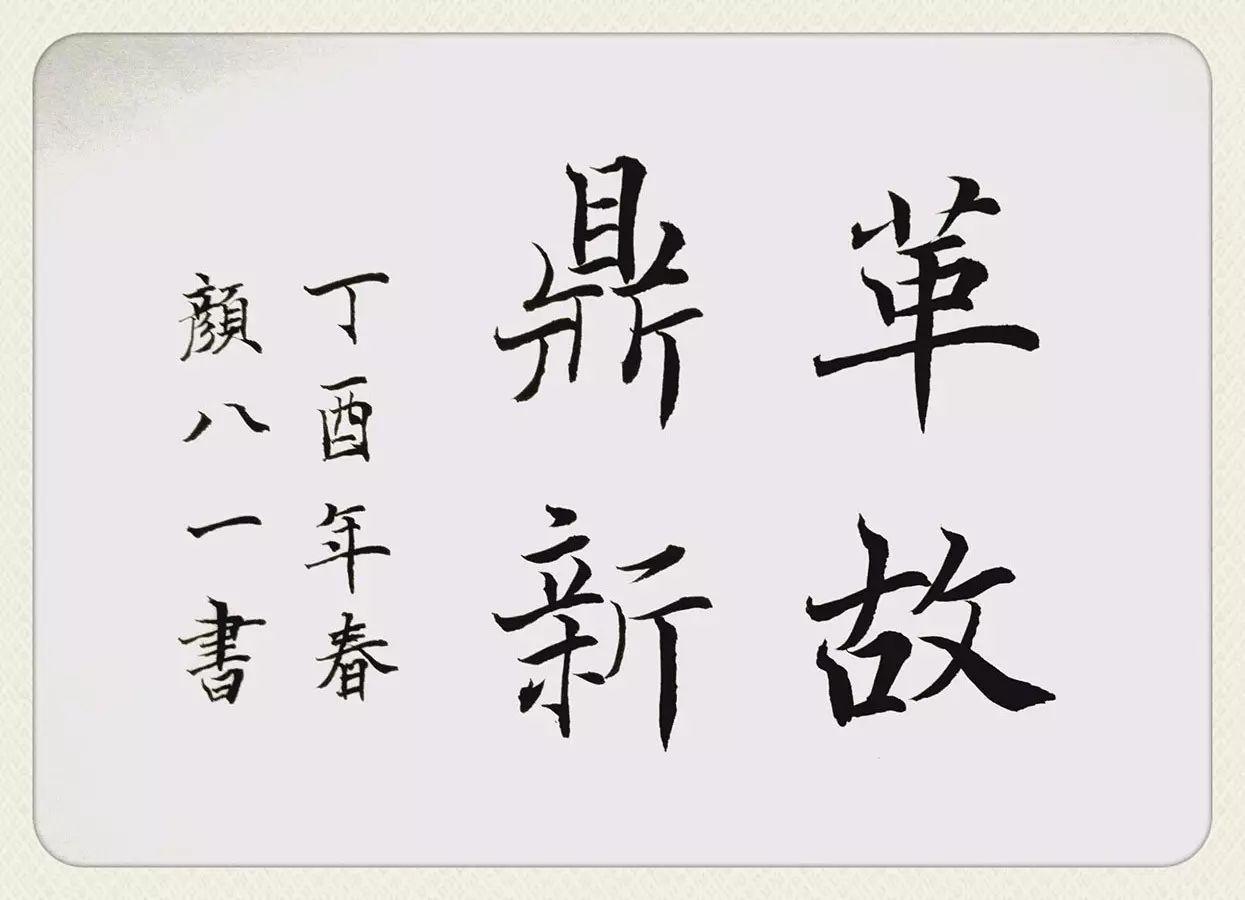 革故
鼎新
丁酉年春
顔八一書